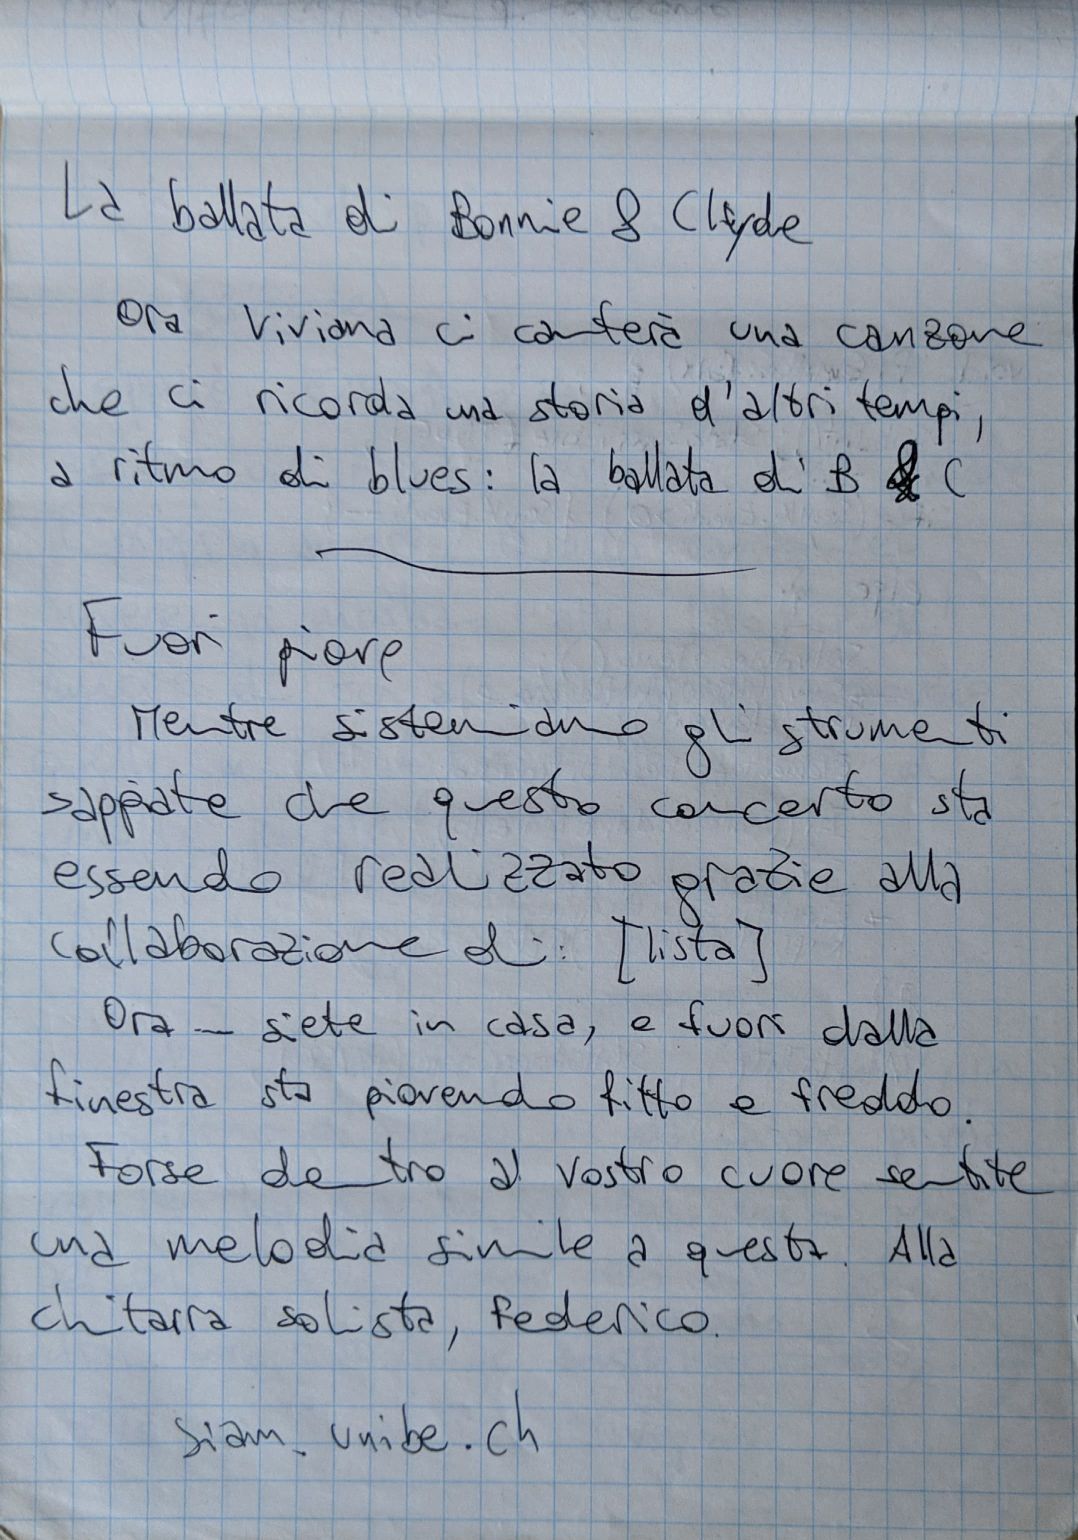 La ballata di Bonnie & Clyde
Ora Viviana ci canterà una canzone
che ci ricorda una storia d'altri tempi,
a ritmo di blues: la ballata di B & C
Fuori piove
Mentre sistemiamo gli strumenti
sappiate che questo concerto sta
essendo realizzato grazie alla
collaborazione di: [lista]
Ora – siete in casa, e fuori dalla
finestra sta piovendo fitto e freddo.
Forse dentro al vostro cuore sentite
una melodia simile a questa. Alla
chitarra solista, Federico.
siam.unibe.ch